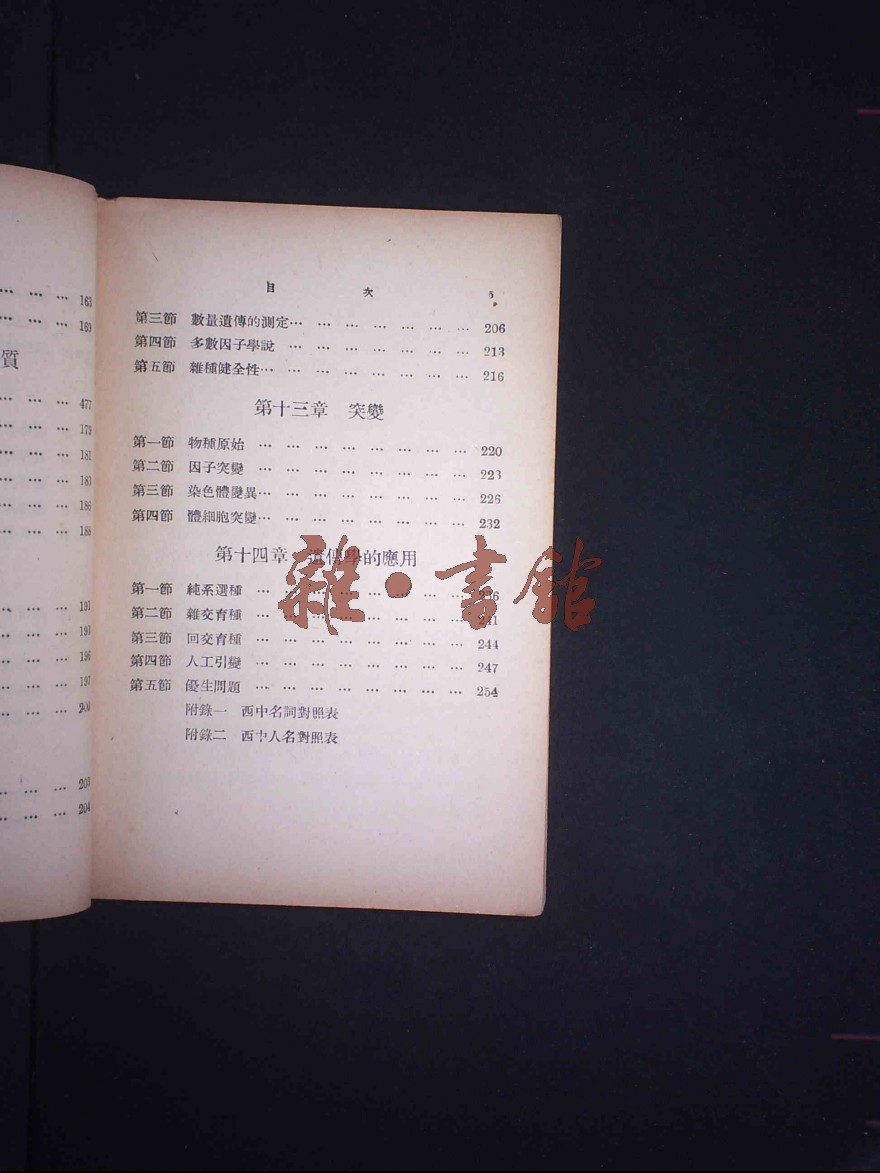 … … … 163
… … … 169
質
… … … 477
… … … 179
… … … 181
… … … 183
… … … 186
… … … 188
… … … 191
… … … 193
… … … 196
… … … 197
… … … 200
… … … 203
… … … 204
目 次 5
第三節 數量遺傳的測定… … … … … … … 206
第四節 多數因子學說 … … … … … … … 213
第五節 雜種健全性… … … … … … … … 216
第十三章 突變
第一節 物種原始 … … … … … … … … 220
第二節 因子突變 … … … … … … … … 223
第三節 染色體變異… … … … … … … … 226
第四節 體細胞突變… … … … … … … … 232
第十四章 遺傳學的應用
第一節 純系選種 … … … … … … … … 236
第二節 雜交育種 … … … … … … … … 241
第三節 回交育種 … … … … … … … … 244
第四節 人工引變 … … … … … … … … 247
第五節 優生問題 … … … … … … … … 254
附錄一 西中名詞對照表
附錄二 西中人名對照表
雜·書館